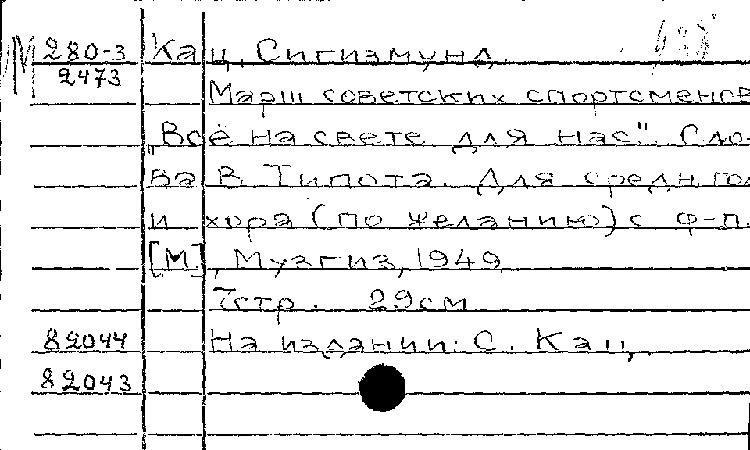 М 280-3 Кац, Сигизмунд.
2473
Марш советских спортсменов
„Всё на свете для нас". Сло-
ва В. Типота. Для средн. гол.
и хора (по желанию) с ф-п.
[М.], Музгиз, 1949
7стр. 29см
82044 На издании: С. Кац.
82043